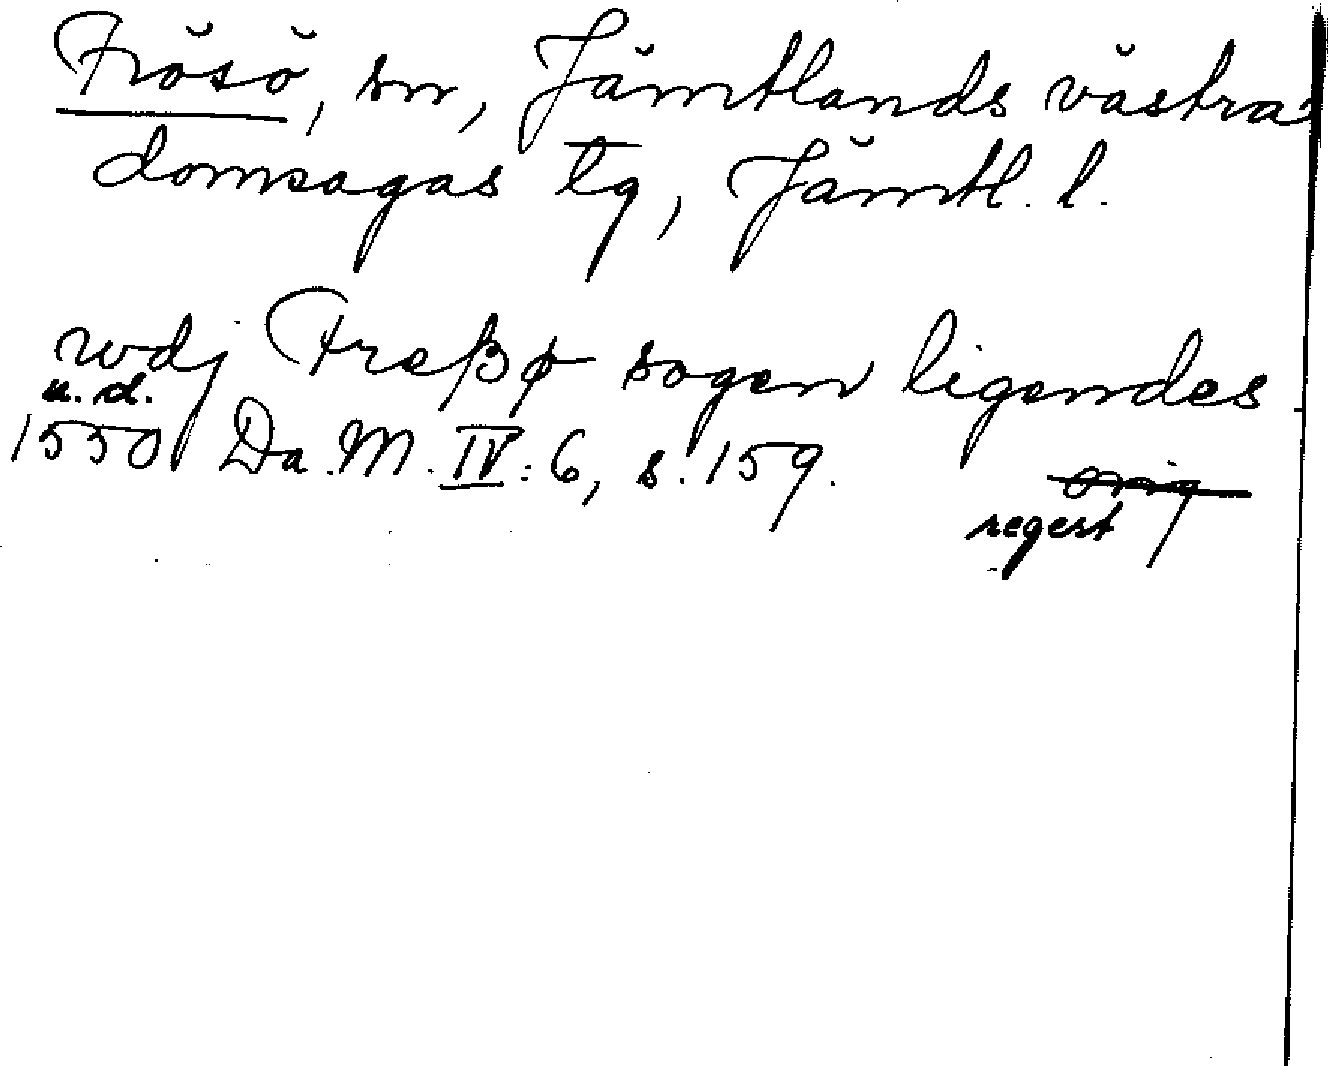 Frösö, sn, Jämtlands västra
domsagas tg, Jämtl. l.
wdj Freßø sogen ligendes
u. d.
1550 Da. M. IV: 6, s. 159.
orig
regest